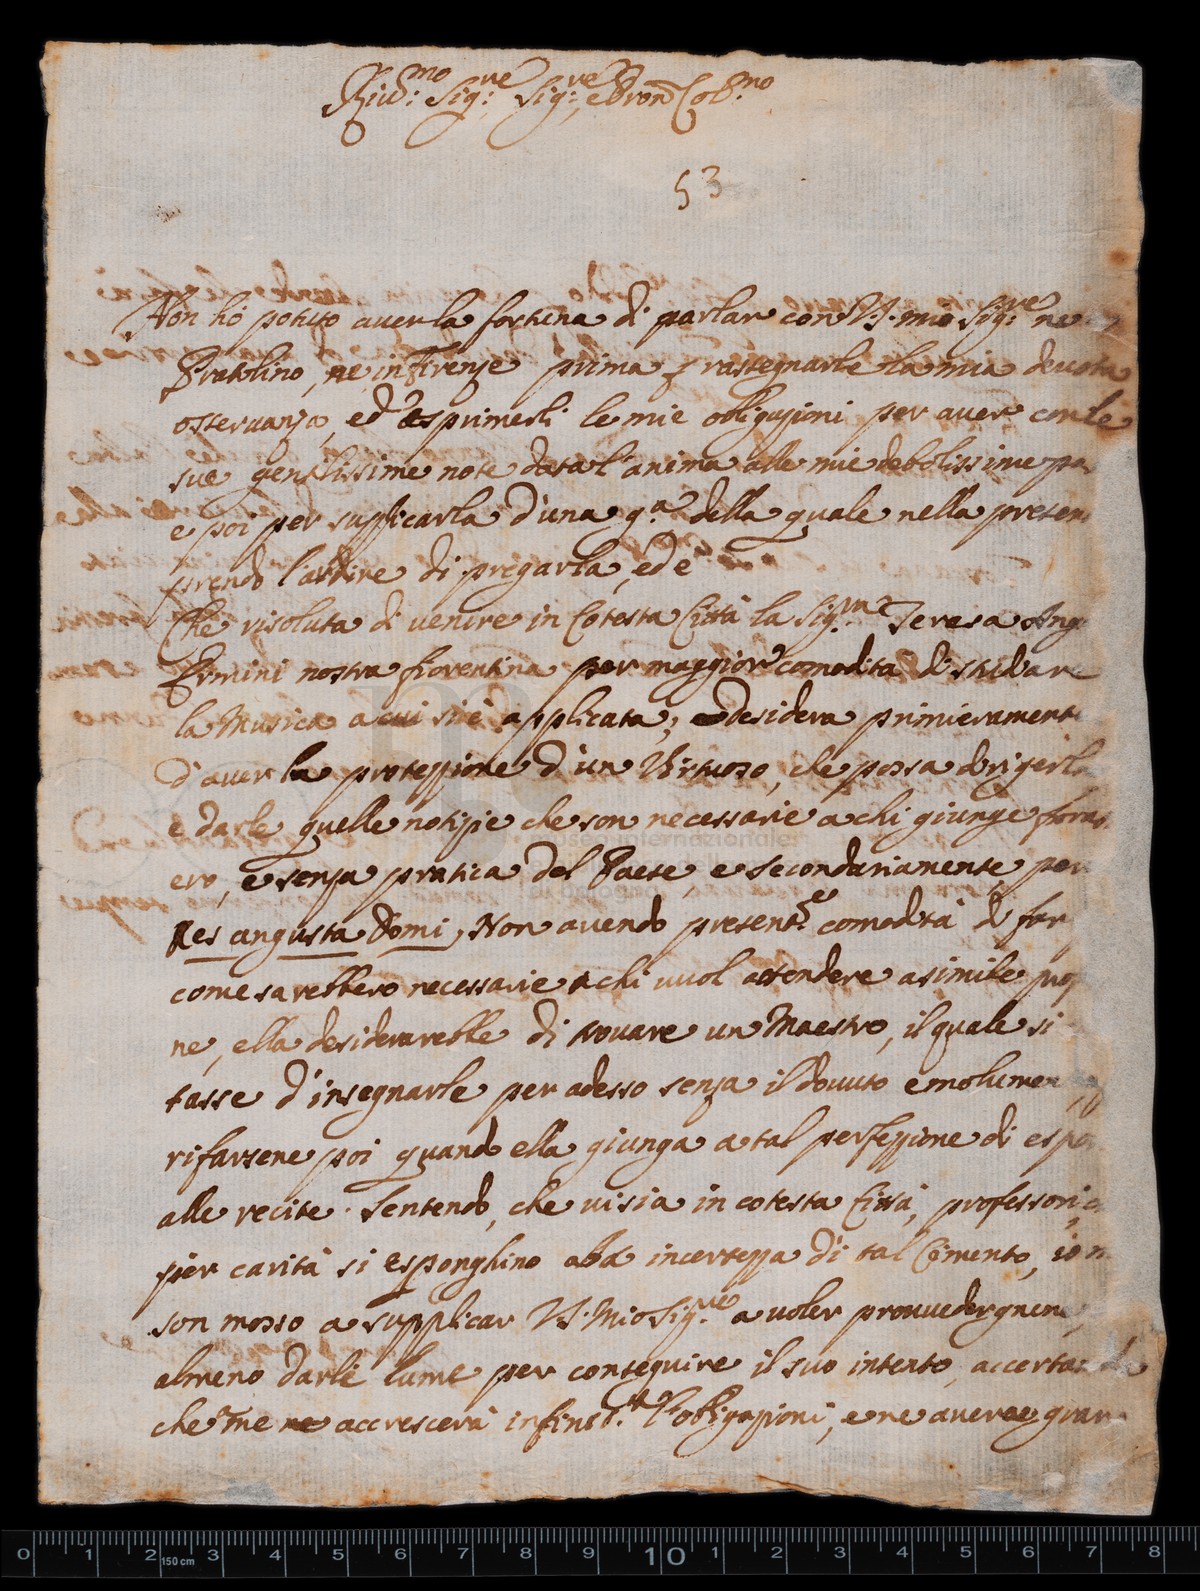 Riv.mo Sig.re Sig.re e Pron Col.mo
53
Non hò potuto aver la fortuna di parlar con V.S. mio Sig.re ne
Pratolino, ne in Firenze prima p rassegnarle la mia devota
osservanza, ed esprimerli le mie obligazioni per aver con le
sue gentilissime note data l'anima alle mie debolissime pa
e poi per supplicarla d'una g.a della quale nella presen
prendo l'ardire di pregarla, ed e
Che risoluta di venire in Cotesta Città la Sig.ra Teresa Ang
Ermini nostra fiorentina per maggior comodita di studiare
la Musica a cui si è applicata, desidera primieramente
d'aver la protezzione d'un Virtuoso, che possa dirigerla
e darle quelle notizie che son necessarie a chi giunge foras
ero, e senza pratica del Paese, e secondariamente per
Res angusta Domi, Non avendo present.e comodità di far
come sarebbero necessarie a chi vuol attendere a simile
ne, ella desiderarebbe di trovare un Maestro, il quale si
tasse d'insegnarle per adesso senza il dovuto emolumen
rifarsene poi quando ella giunga a tal perfezzione di espo
alle recite. Sentendo, che vi sia in cotesta Città, professori,
per carità si esponghino alla incertezza di tal Cimento, io m
son mosso a supplicar V.S. Mio Sig.re a voler provvedergnene,
almeno darle lume per conseguire il suo intento, accertan
che me ne accrescerà infinit.te l'obligazioni, e ne averae gran
0 1 2 3 4 5 6 7 8 9 10 1 2 3 4 5 6 7 8
150 cm